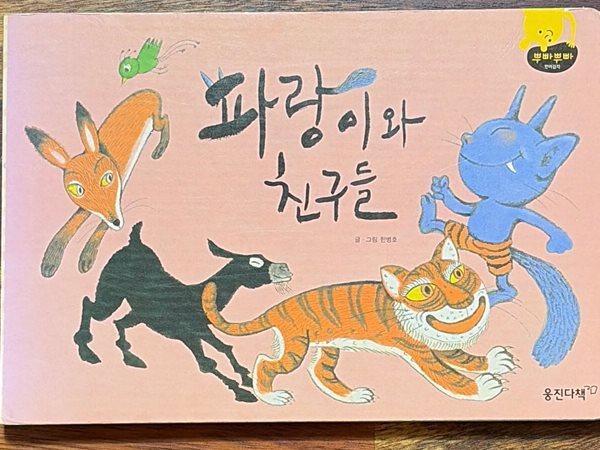 뿌빠뿌빠
언어감각
파랑이와
친구들
글·그림 한병호
웅진다책